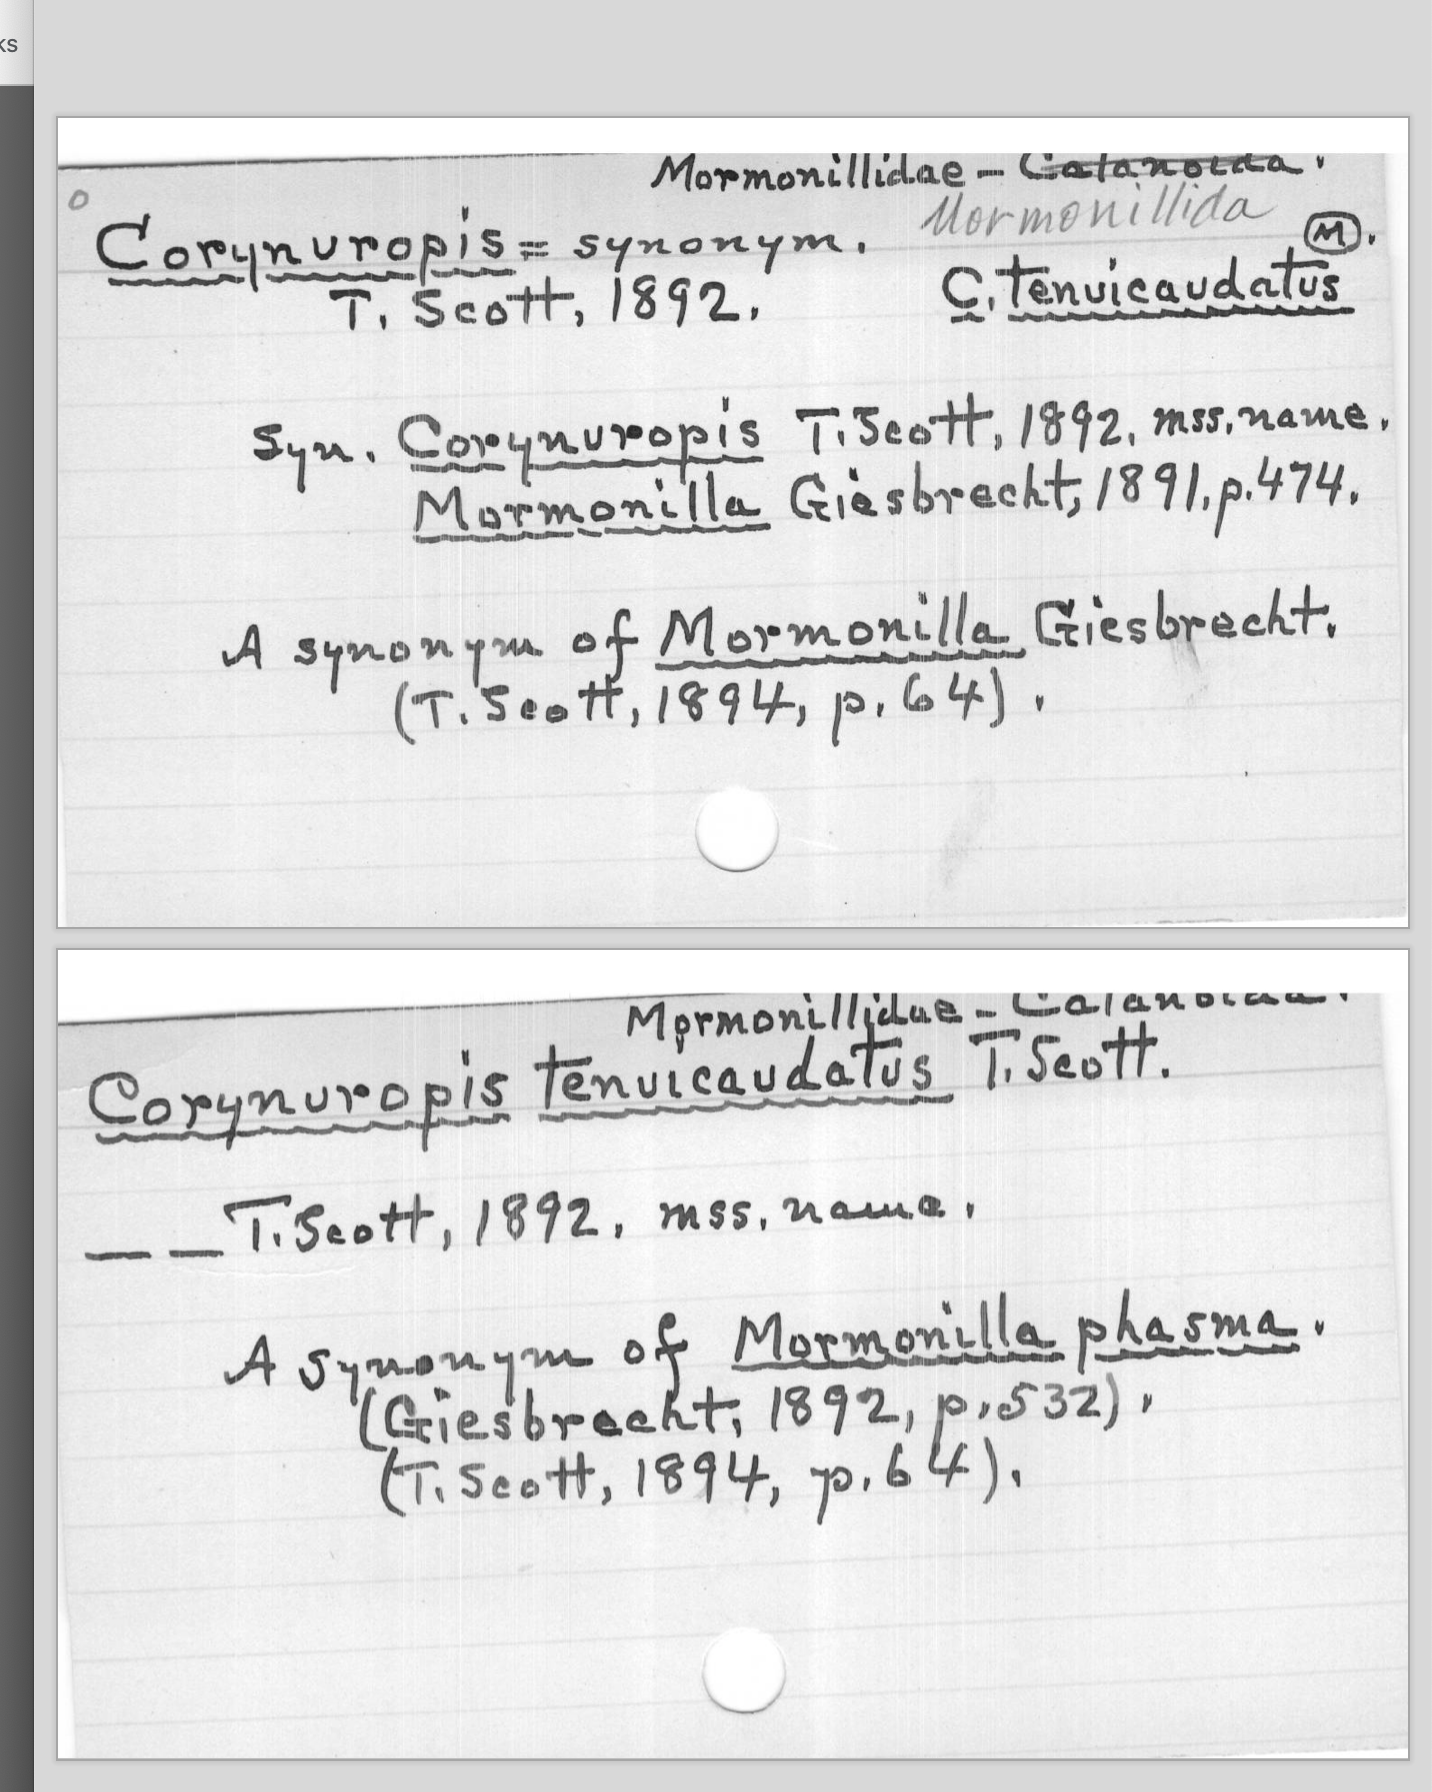 ks
Mormonillidae - Calanoida.
Mormonillida
Corynuropis = synonym. (M).
T. Scott, 1892. C. tenuicaudatus
Syn. Corynuropis T. Scott, 1892. mss. name.
Mormonilla Giesbrecht, 1891, p. 474.
A synonym of Mormonilla Giesbrecht.
(T. Scott, 1894, p. 64).
Mormonillidae - Calanoida.
Corynuropis tenuicaudatus T. Scott.
_ _ T. Scott, 1892. mss. name.
A synonym of Mormonilla phasma.
(Giesbrecht, 1892, p. 532).
(T. Scott, 1894, p. 64).